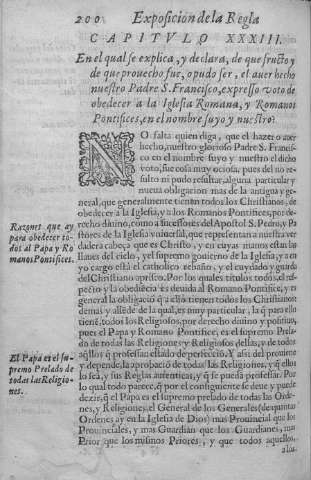 200 Exposicion de la Regla
CAPITVLO XXXIII.
En el qual se explica, y declara, de que fructo y
de que prouecho fue, o pudo ser, el auer hecho
nuestro Padre S. Francisco, expresso voto de
obedecer a la Iglesia Romana, y Romanos
Pontifices, en el nombre suyo y nuestro:
NO falta quien diga, que el hazer o auer
hecho, nuestro glorioso Padre S. Francis-
co en el nombre suyo y nuestro el dicho
voto, fue cosa muy ociosa, pues del no re-
sulto ni pudo resultar, alguna particular y
nueua obligacion mas de la antigua y ge-
neral, que generalmente tienen todos los Christianos, de
obedecer a la Iglesia, y a los Romanos Pontifices, por de-
recho diuino, como a successores del Apostol S. Pedro, y Pa-
stores de la Iglesia vniuersal, que representan a nuestra ver
dadera cabeça que es Christo, y en cuyas manos estan las
llaues del cielo, y el supremo gouierno de la Iglesia, y a cu
yo cargo está el catholico rebaño, y el cuydado y guarda
del Christiano aprisco. Por los quales titulos todos, el res-
pecto y la obediēcia es deuida al Romano Pontifice, y es
general la obligació q̃ a ello tienen todos los Christianos:
demas y allēde de la qual, es muy particular, la q̃ para ello
tienē, todos los Religiosos, por derecho diuino y positiuo,
pues el Papa y Romano Pontifice, es el supremo Prela-
do de todas las Religiones y Religiosos dellas, y de todos
aq̃llos q̃ professan estado de perfecció. Y assi del proximo
y depende, la aprobació de todas las Religiones, y q̃ ellos
lo seā, y sus Reglas autenticas, y q̃ se pueda professar. Por
lo qual todo parece, q̃ por el consiguiente se deue y puede
dezir, q̃ el Papa es el supremo prelado de todas las Orde-
nes, y Religiones, el General de los Generales (de quantas
Ordenes ay en la Iglesia de Dios) mas Prouincial que los
Prouinciales, y mas Guardian que los Guardianes, mas
Prior que los mismos Priores, y que todos aquellos,
Razones que ay
para obedecer to-
dos al Papa y Ro
manos Pontifices.
El Papa es el su-
premo Prelado de
todas las Religio-
nes.